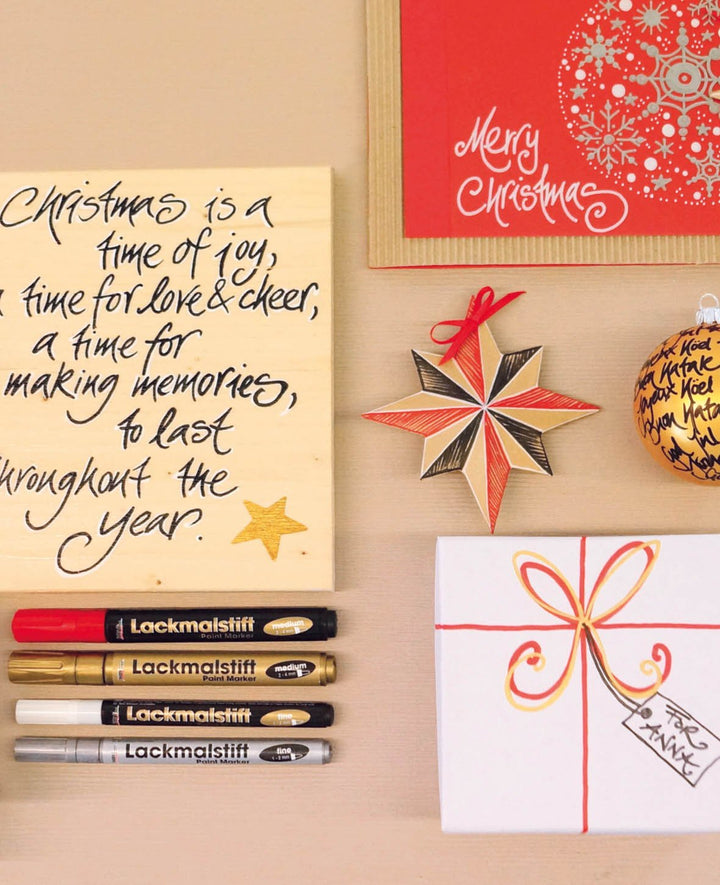 Christmas is a
time of joy,
a time for love & cheer,
a time for
making memories,
to last
throughout the
year.
Merry
Christmas
Noël
Natale
Joyeux Noël
Natale
Lackmalstift
Paint Marker
medium
2-4 mm
Lackmalstift
Paint Marker
medium
2-4 mm
Lackmalstift
Paint Marker
fine
Lackmalstift
Paint Marker
fine
1-2 mm
FOR
ANNA